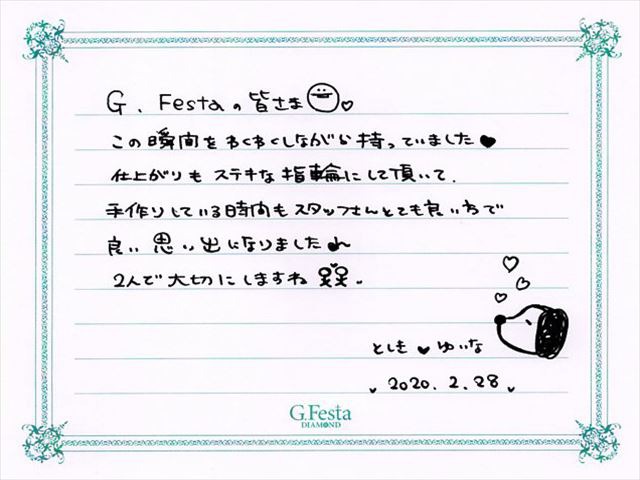 G. Festaの皆さま
この瞬間をわくわくしながら持っていました♥
仕上がりもステキな指輪にして頂いて.
手作りしている時間もスタッフさんとても良い方で
良い思い出になりました♪
2人で大切にしますね
としき♥ゆいな
2020.2.28
G.Festa
DIAMOND